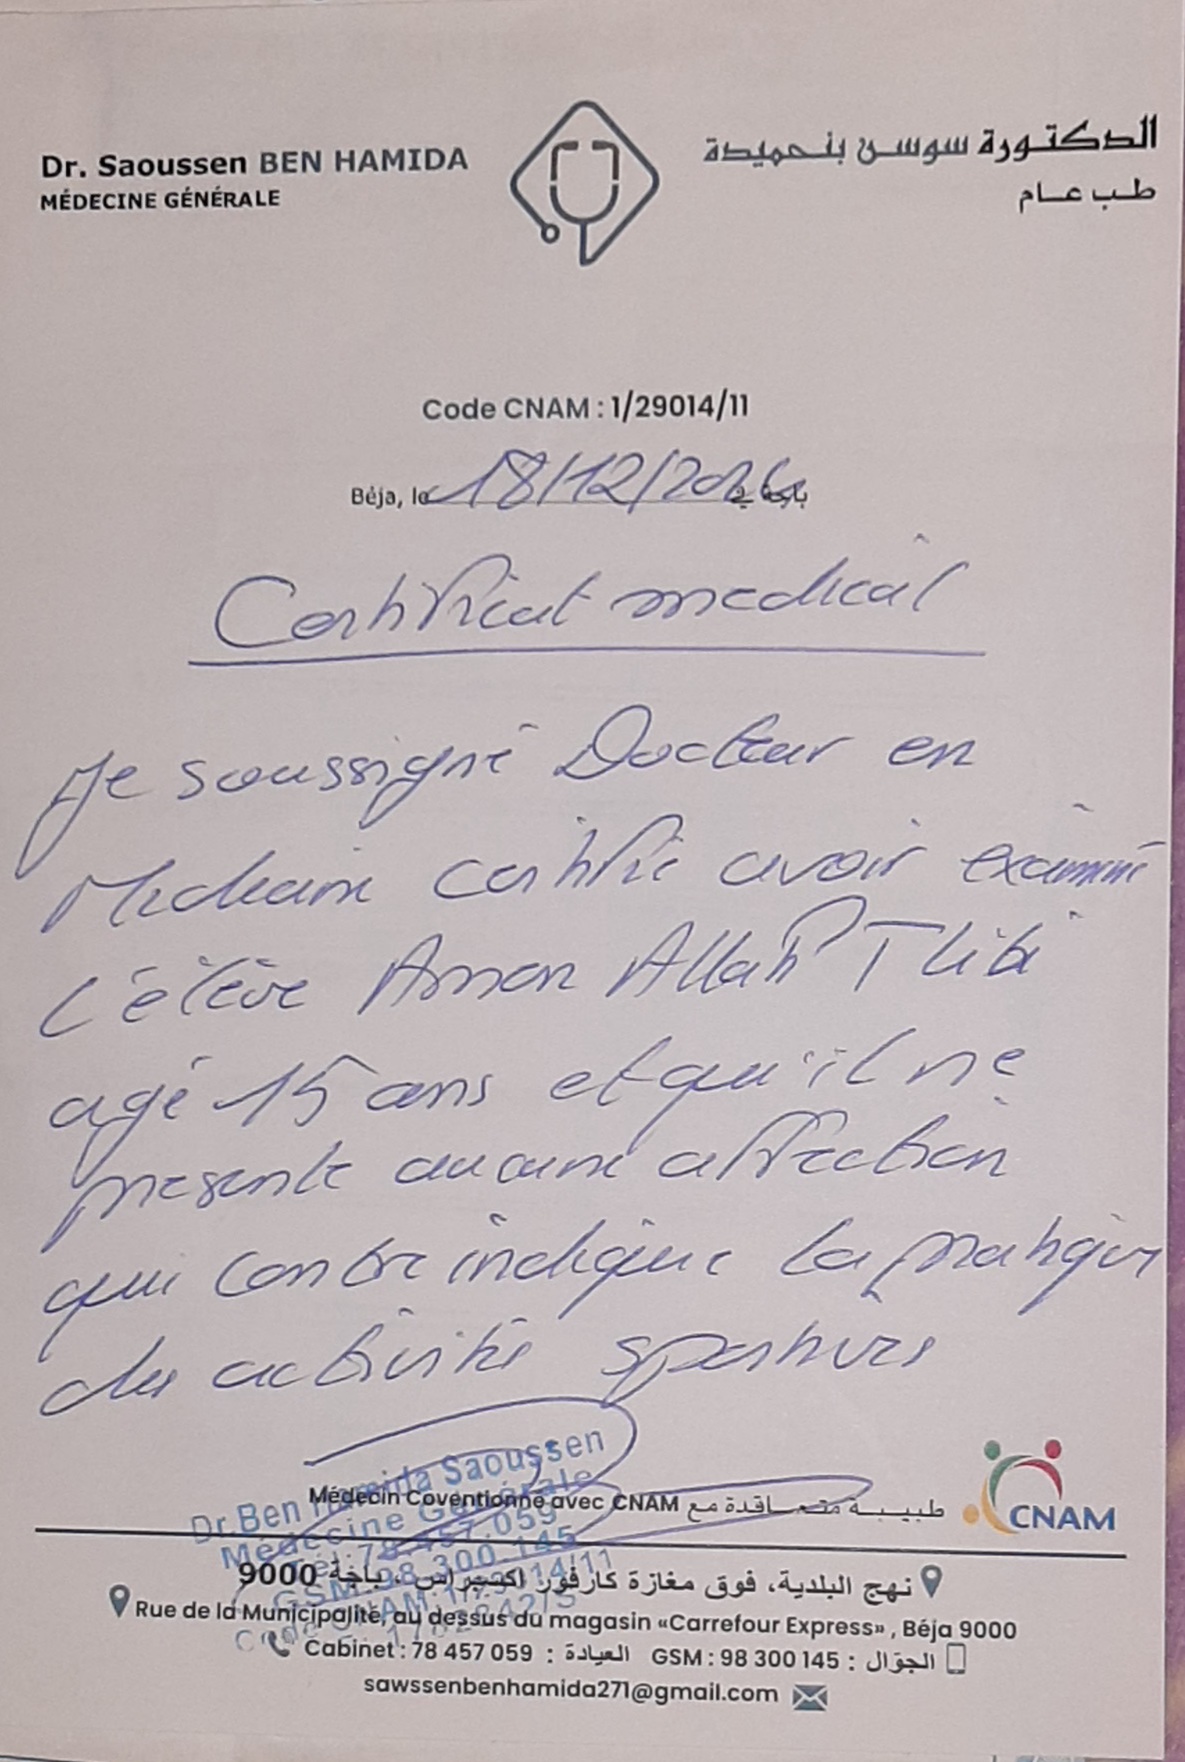 Dr. Saoussen BEN HAMIDA
MÉDECINE GÉNÉRALE
الدكتورة سوسن بنحميدة
طب عام
Code CNAM : 1/29014/11
Béja, le 18/12/2024 باجة في
Certificat medical
Je soussigné Docteur en
Medecine certifie avoir examiné
L'élève Amen Allah Tlibi
agé 15 ans et qu'il ne
presente aucune affection
qui contre indique la pratique
des activités sportives
Dr. Ben Hamida Saoussen
Médecine Générale
Tél: 78.457.059
GSM: 98.300.145
Code CNAM: 1/29014/11
Médecin Coventionné avec CNAM طبيبة متعاقدة مع
CNAM
نهج البلدية، فوق مغازة كارفور اكسبراس، باجة 9000
Rue de la Municipalité, au dessus du magasin «Carrefour Express» , Béja 9000
Cabinet : 78 457 059 : العيادة GSM : 98 300 145 : الجوّال
sawssenbenhamida271@gmail.com